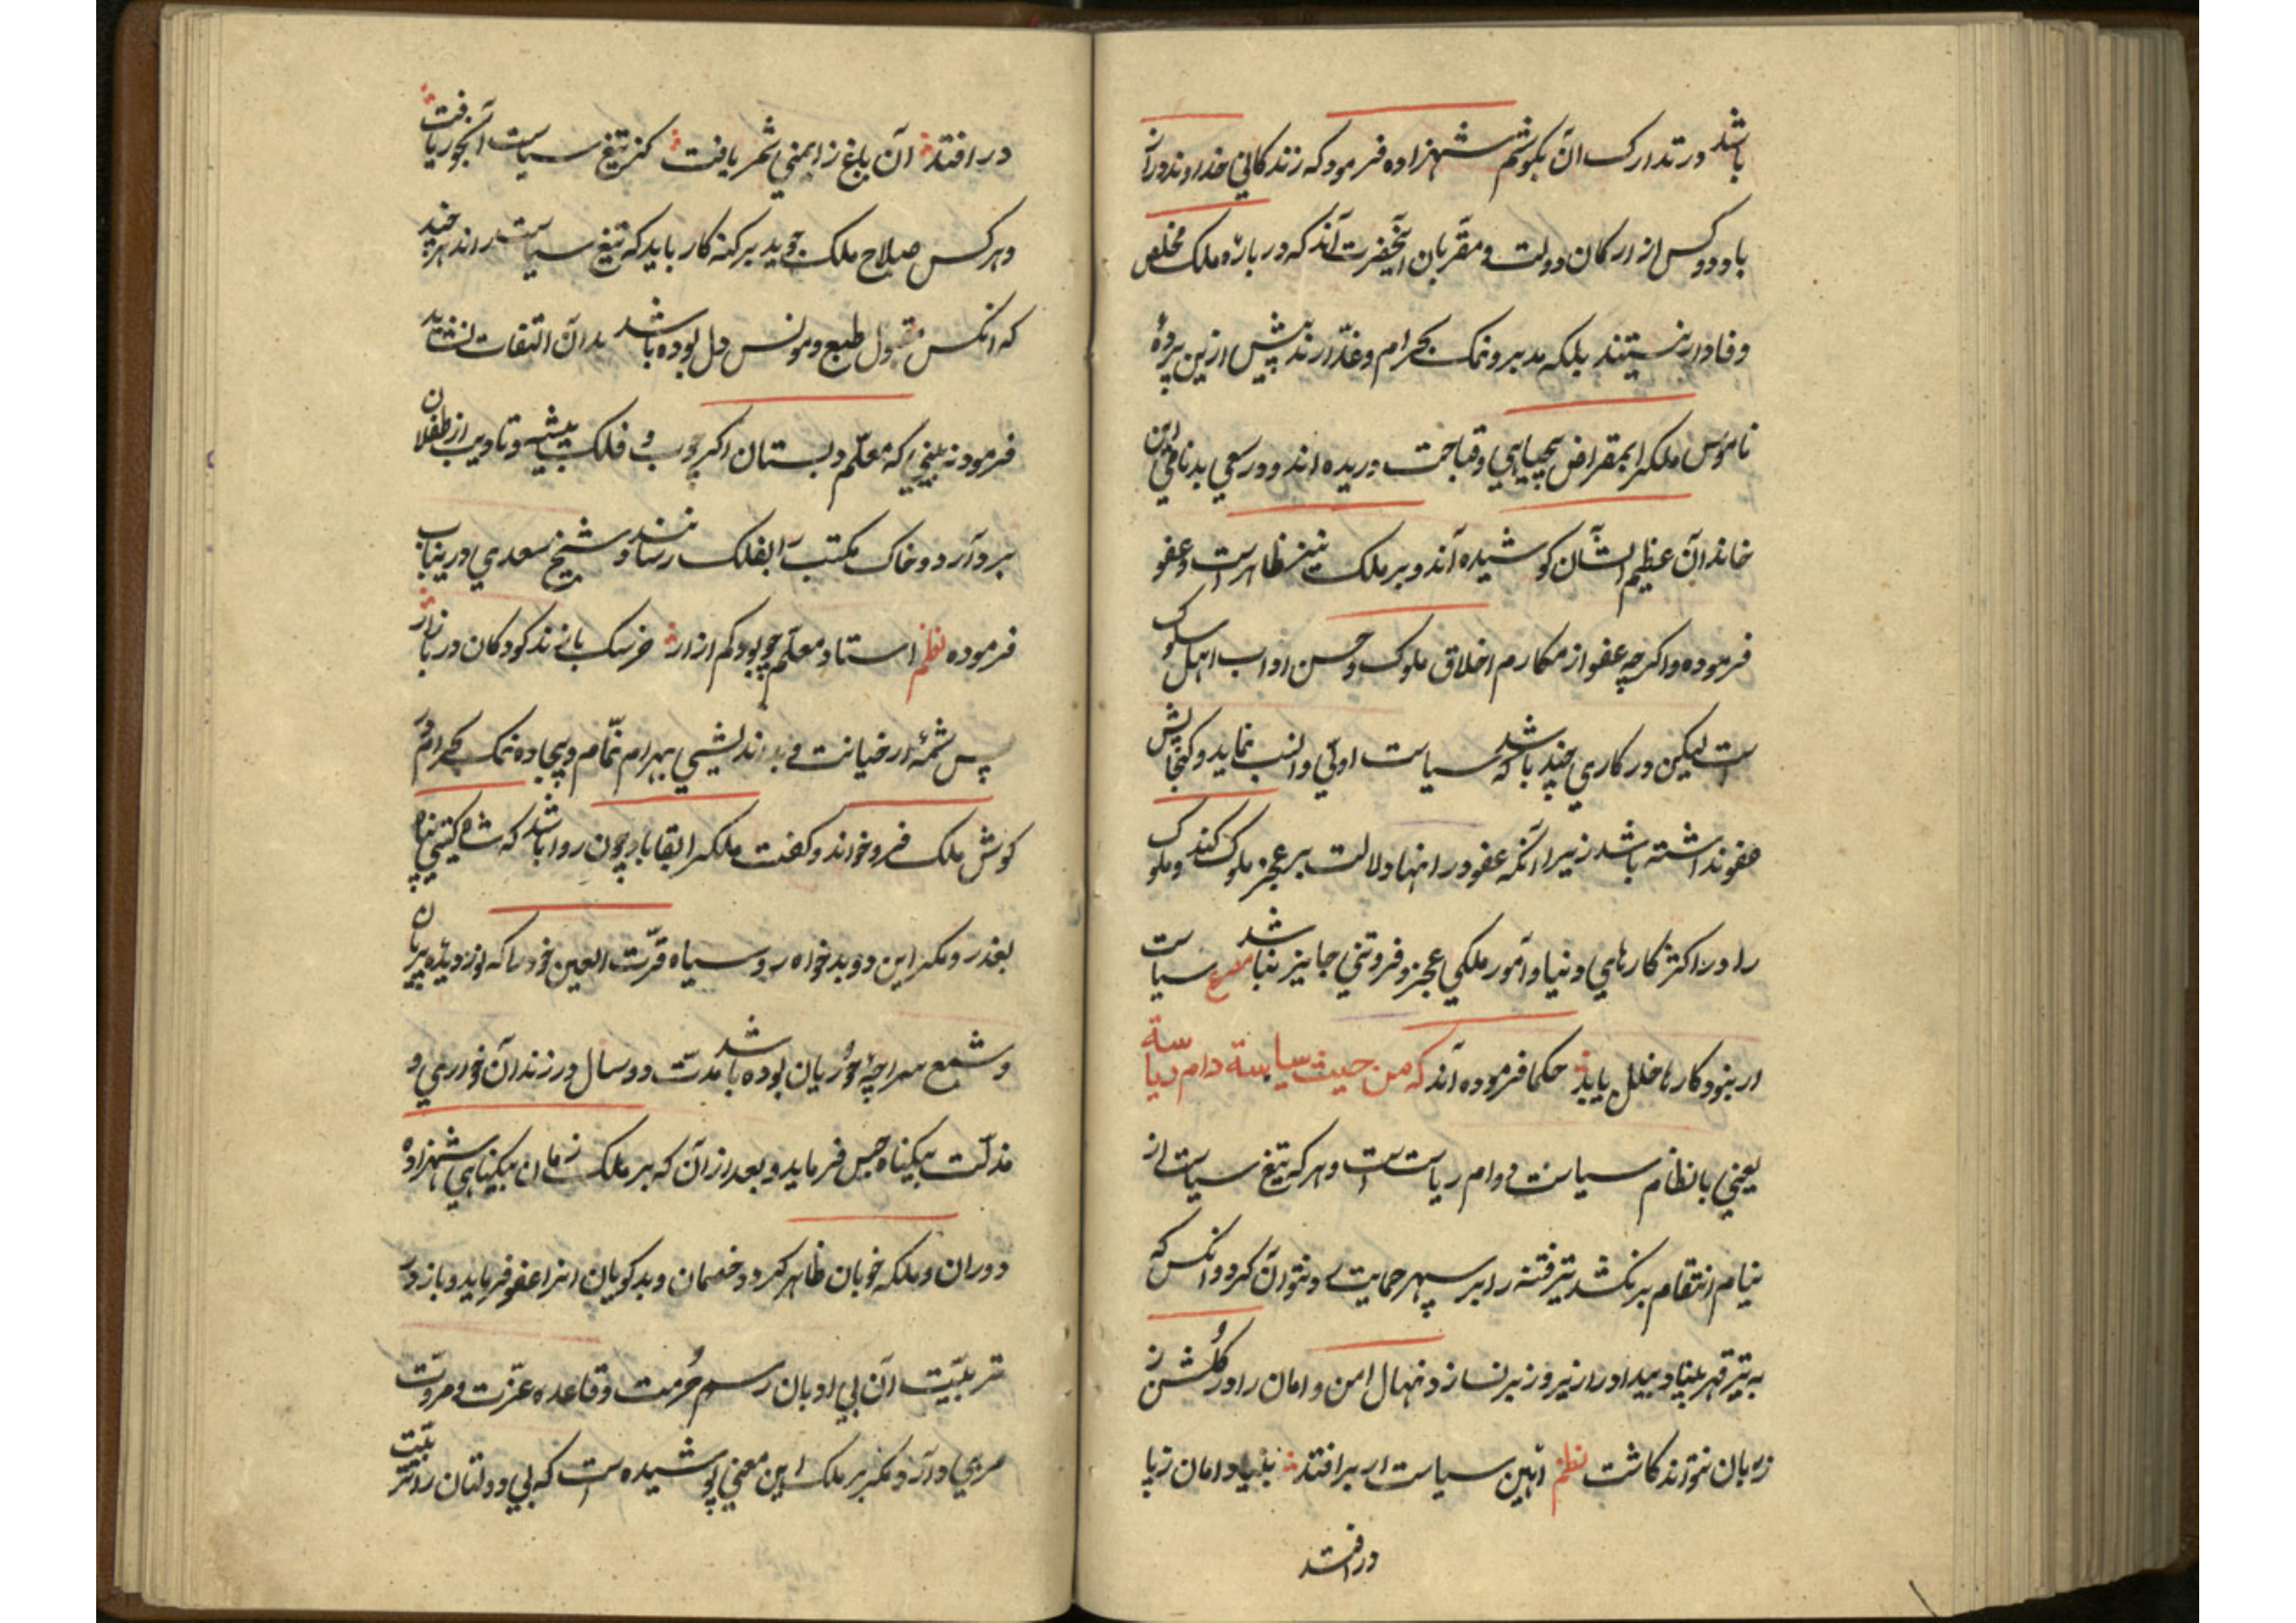 باشد در تدارک آن بکوشم شهزاده فرمود که زندکانی خداوند دراز
باد دو کس از ارکان دولت و مقربان آنحضرت آند که در باره ملک مخلص
وفادار نیستند بلکه مدبر و نمک بحرام و غدارند پیش ازین پرده
ناموس ملکه را بمقراض بیحیایی و قباحت دریده اند و در سعی بدنامی این
خاندان عظیم الشان کوشیده آند و بر ملک نیز ظاهر است و عفو
فرموده و اکر چه عفو از مکارم اخلاق ملوک و حسن اداب اهل سلوک
است لیکن در کاری چند باشد که سیاست اولی و انسب نماید و کنجایش
عفو نداشته باشد زیرا آنکه عفو در انها دلالت بر عجز ملوک کند و ملوک
را در اکثر کارهای دنیا و آمور ملکی عجز و فروتنی جایز نباشد مصرع سیاست
ار نبود کارها خلل یابد حکما فرموده آند که من حیث سیاسة دام ریاسة
یعنی بانظام سیاست دوام ریاست است و هر که تیغ سیاست از
نیام انتقام بر نکشد تیر فتنه را بر سپهر حمایت رد نتوان کرد و انکس که
به تیر قهر بنیاد بیداد را زیر و زبر نسازد نهال امن و امان را در کلشن
زمان نتواند کاشت نظم ائین سیاست ار بر افتد بنیاد امان ز پا
در افتد
در افتد آن باغ ز ایمنی ثمر یافت کز تیغ سیاست آبخور یافت
و هر کس صلاح ملک جوید بر کنه کار باید که تیغ سیاست راند هر چند
که انکس مقبول طبع و مونس دل بوده باشد بدان التفات نشاید
فرمود نه بینی که معلم دبستان اکر چوب و فلک بیشه و تادیب از طفلان
بردآرد و خاک مکتب را بفلک رسانند و شیخ سعدی درینباب
فرموده نظم استاد معلم چو بود کم ازار خرسک بازند کودکان در بازار
پس شمه از خیانت و بد اندیشی بهرام نمام و بیجاده نمک بحرام در
کوش ملک فرو خواند و کفت ملک را بقا باد چون روا باشد که شاه کیتی پناه
بغدر و مکر این دو بد خواه رو سیاه قرت العین خود را که نور دیده پریان
و شمع سراچه حوریان بوده باشد مدت دو سال در زندان خواری و
مذلت بیکناه حبس فرماید و بعد از آن که بر ملک زمان بیکناهی شهزاده
دوران و ملکه خوبان ظاهر کردد خصمان و بدکویان انرا عفو فرماید و باز در
تربیت آن بی ادبان رسم حرمت و قاعده عزت و مروت
مرعی دآرد مکر بر ملک این معنی پوشیده است که بی دولتان را تربیت